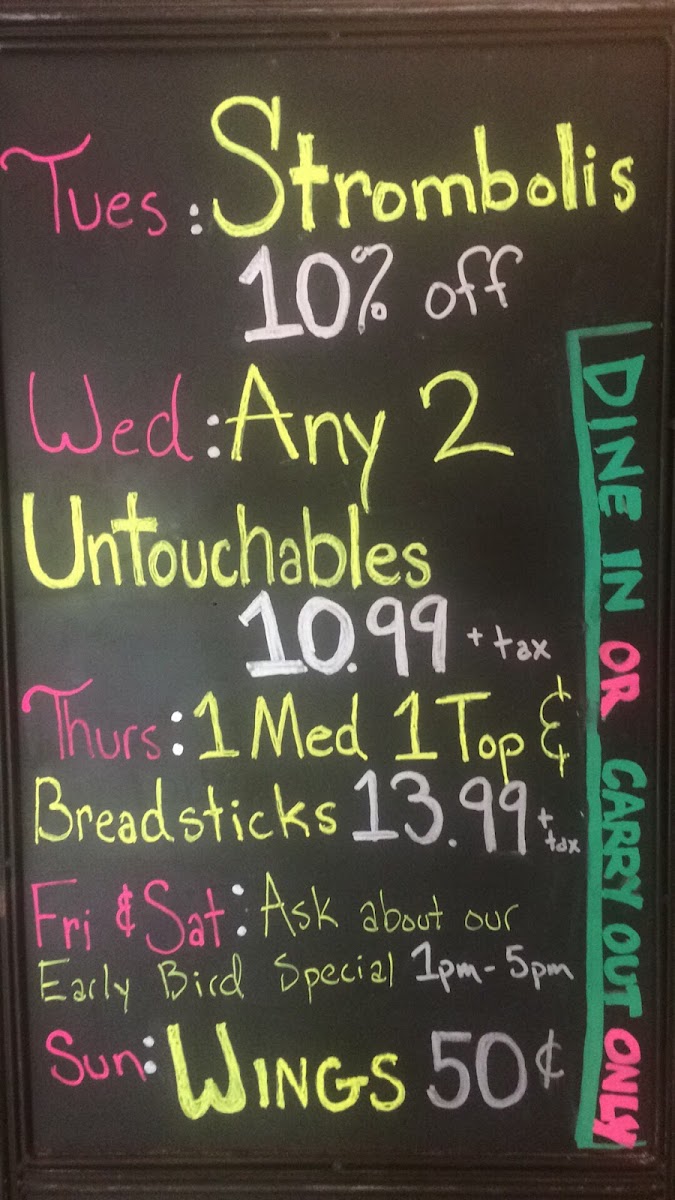 Tues: Strombolis
10% off
Wed: Any 2
Untouchables
10.99 + tax
Thurs: 1 Med 1 Top &
Breadsticks 13.99 + tax
Fri & Sat: Ask about our
Early Bird Special 1pm-5pm
Sun: WINGS 50¢
DINE IN OR CARRY OUT ONLY